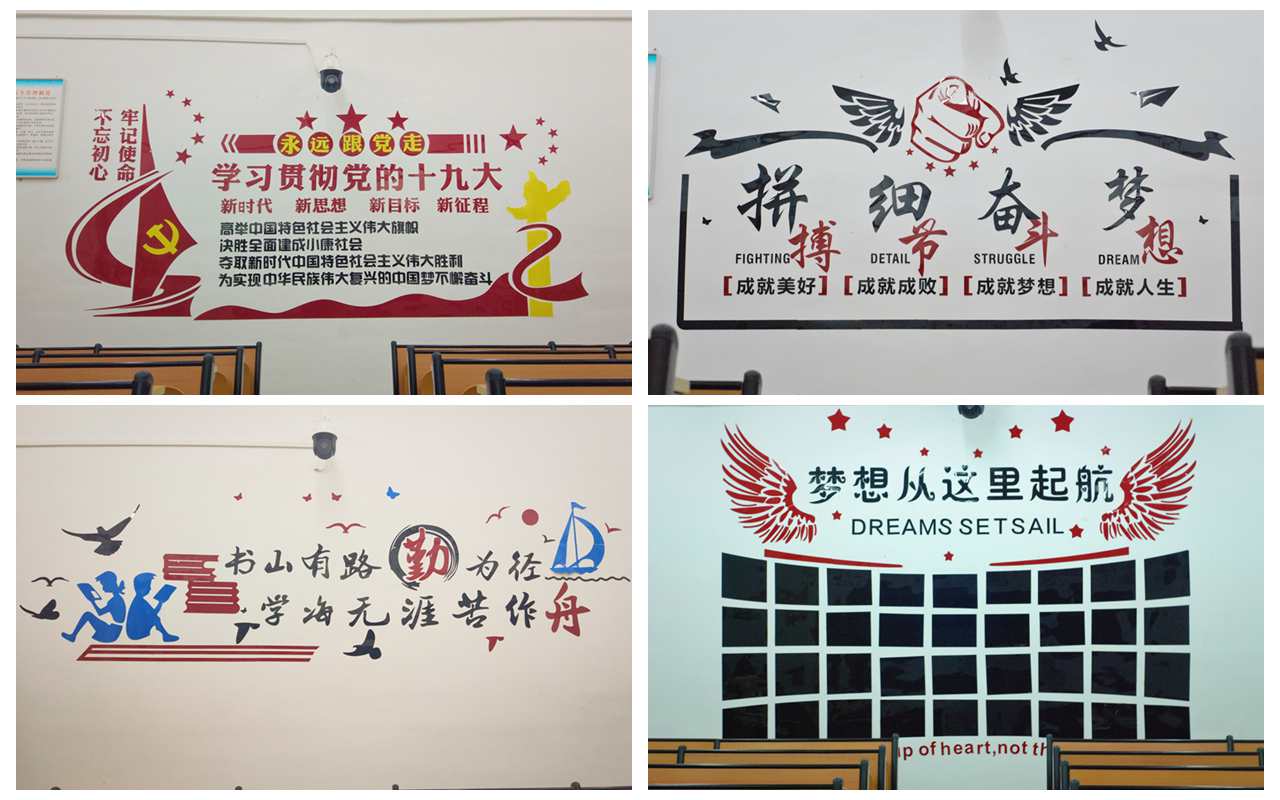 不忘初心
牢记使命
永远跟党走
学习贯彻党的十九大
新时代 新思想 新目标 新征程
高举中国特色社会主义伟大旗帜
决胜全面建成小康社会
夺取新时代中国特色社会主义伟大胜利
为实现中华民族伟大复兴的中国梦不懈奋斗
拼搏 细节 奋斗 梦想
FIGHTING DETAIL STRUGGLE DREAM
[成就美好] [成就成败] [成就梦想] [成就人生]
书山有路勤为径
学海无涯苦作舟
梦想从这里起航
DREAMS SET SAIL
of heart,not